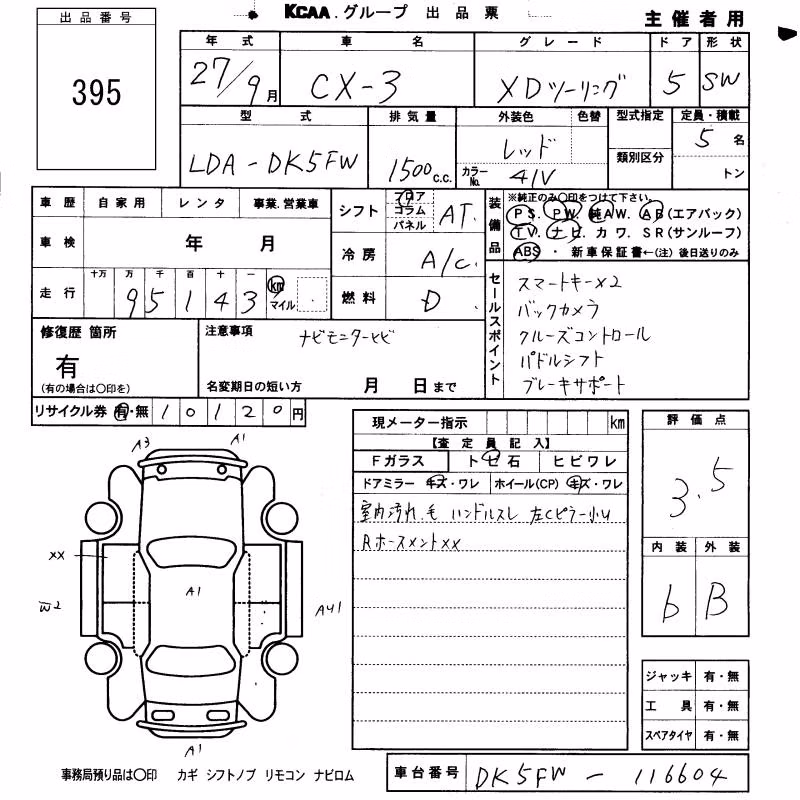 KCAA.グループ 出品票
主催者用
出品番号
395
年式 車名 グレード ドア 形状
27/9月 CX-3 XDツーリング 5 SW
型式 排気量 外装色 色替 型式指定 定員・積載
LDA-DK5FW 1500c.c. レッド 5名
カラーNo. 41V 類別区分 トン
車歴 自家用 レンタ 事業.営業車
車検 年 月
走行 十万 万 千 百 十 一
95143 km マイル
シフト フロア コラム パネル AT
冷房 A/C
燃料 D
装備品 ※純正のみ〇印をつけて下さい。
PS. PW. 純AW. AB(エアバック)
TV. ナビ. カワ. SR(サンルーフ)
ABS ・ 新車保証書←(注)後日送りのみ
セールスポイント
スマートキー×2
バックカメラ
クルーズコントロール
パドルシフト
ブレーキサポート
修復歴 箇所
有
(有の場合は〇印を)
注意事項 ナビモニターヒビ
名変期日の短い方 月 日まで
リサイクル券 有・無 10120円
現メーター指示 km
【査定員記入】
Fガラス トビ石 ヒビワレ
ドアミラー キズ・ワレ ホイール(CP) キズ・ワレ
室内汚れ 毛 ハンドルスレ 左Cピラー小U
Rホースメントxx
評価点
3.5
内装 外装
b B
ジャッキ 有・無
工具 有・無
スペアタイヤ 有・無
A3 A1
XX
W2 A1 AU1
A1
事務局預り品は〇印 カギ シフトノブ リモコン ナビロム
車台番号 DK5FW - 116604